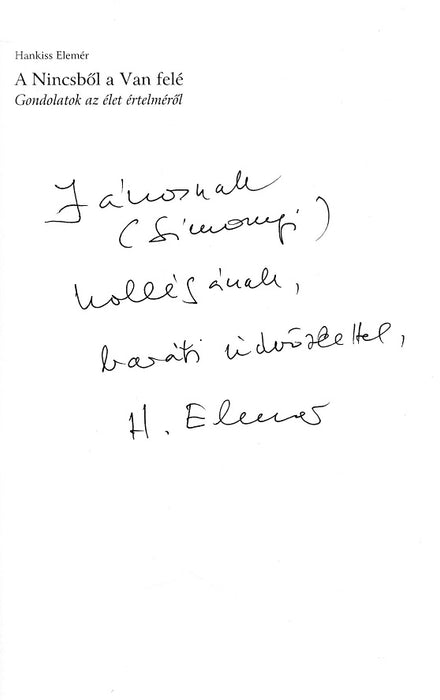 Hankiss Elemér
A Nincsből a Van felé
Gondolatok az élet értelméről
Jánosnak
(Simonyi)
kollégának,
baráti üdvözlettel,
H. Elemér